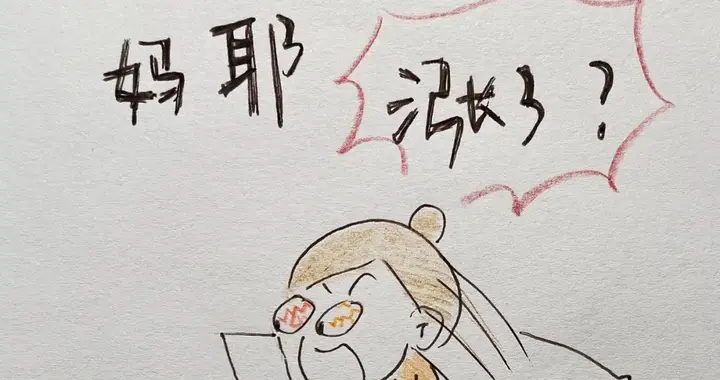 妈耶
涨了？